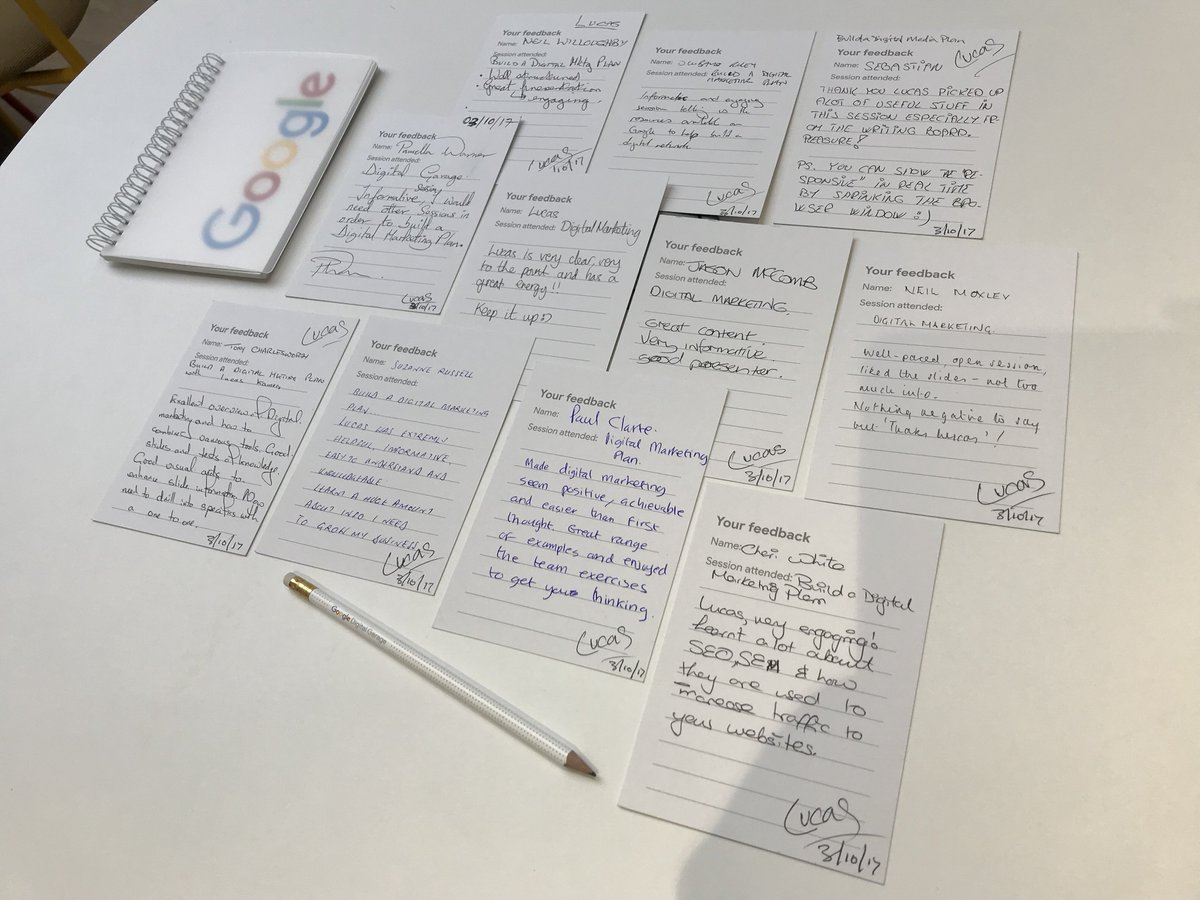 Google
Lucas
Your feedback
Name: NEIL WILLOUGHBY
Session attended:
BUILD A DIGITAL Mktg PLAN
• Well structured
• Great presentation
↳ engaging.
Lucas
Your feedback
Name:
Session attended: BUILD A DIGITAL
MARKETING PLAN
Informative and engaging
session talking us the
resources available
Google to help build a
digital network
Lucas
3/10/17
Build a Digital Media Plan
Your feedback
Lucas
Name: SEBASTIAN
Session attended:
THANK YOU LUCAS PICKED UP
ALOT OF USEFUL STUFF IN
THIS SESSION ESPECIALLY FR-
OM THE WRITING BOARD.
PLEASURE!
PS. YOU CAN SHOW THE "RE-
SPONSIVE" IN REAL TIME
BY SHRINKING THE BRO-
WSER WINDOW :)
3/10/17
03/10/17
Your feedback
Name: Pamella Warner
Session attended:
Digital Garage
Informative session, I would
need other Sessions in
order to build a
Digital Marketing Plan.
Lucas
3/10/17
Your feedback
Name: Lucas
Session attended: Digital Marketing
Lucas is very clear, very
to the point and has a
great energy!!
Keep it up :)
Your feedback
Name: JASON MCCOMB
Session attended:
DIGITAL MARKETING.
Great content.
Very informative.
Good presenter.
Lucas
3/10/17
Your feedback
Name: NEIL MOXLEY
Session attended:
DIGITAL MARKETING.
Well-paced, open session,
liked the slides - not too
much info.
Nothing negative to say
but 'Thanks Lucas'!
Lucas
3/10/17
Your feedback
Lucas
Name: TONY CHARLESWORTH
Session attended:
BUILD A DIGITAL MKTING PLAN
with Lucas
Excellent overview of Digital
marketing and how to
combine various tools. Good
slides and depts of knowledge.
Good visual apts to
enhance slide information. Also
need to drill into specifics with
a one to one.
3/10/17
Your feedback
Name: SUZANNE RUSSELL
Session attended:
BUILD A DIGITAL MARKETING
PLAN
LUCAS WAS EXTREMLY
HELPFUL, INFORMATIVE,
EASY TO UNDERSTAND AND
KNOWLEDGABLE
LEARNT A HUGE AMOUNT
ABOUT INFO I NEED
TO GROW MY BUSINESS
Lucas
3/10/17
Your feedback
Name: Paul Clarke.
Session attended: Digital Marketing
Plan.
Made digital marketing
seem positive, achievable
and easier than first
thought. Great range
of examples and enjoyed
the team exercises
to get you thinking.
Lucas
3/10/17
Your feedback
Name: Cheri White
Session attended: Build a Digital
Marketing Plan
Lucas, very engaging!
Learnt a lot about
SEO, SEM & how
they are used to
increase traffic to
your websites.
Lucas
3/10/17
Google Digital Garage